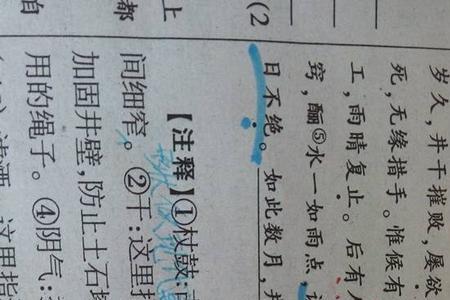 岁久，井干摧败，屡欲
死，无缘措手。惟候有
工，雨晴复止。后有
窍，酾⑤水一如雨点，
日不绝。如此数月，井
(2
【注释】①杖鼓：
上
间细窄。②干：这里指
都
加固井壁，防止土石
用的绳子。④阴气：
这里指